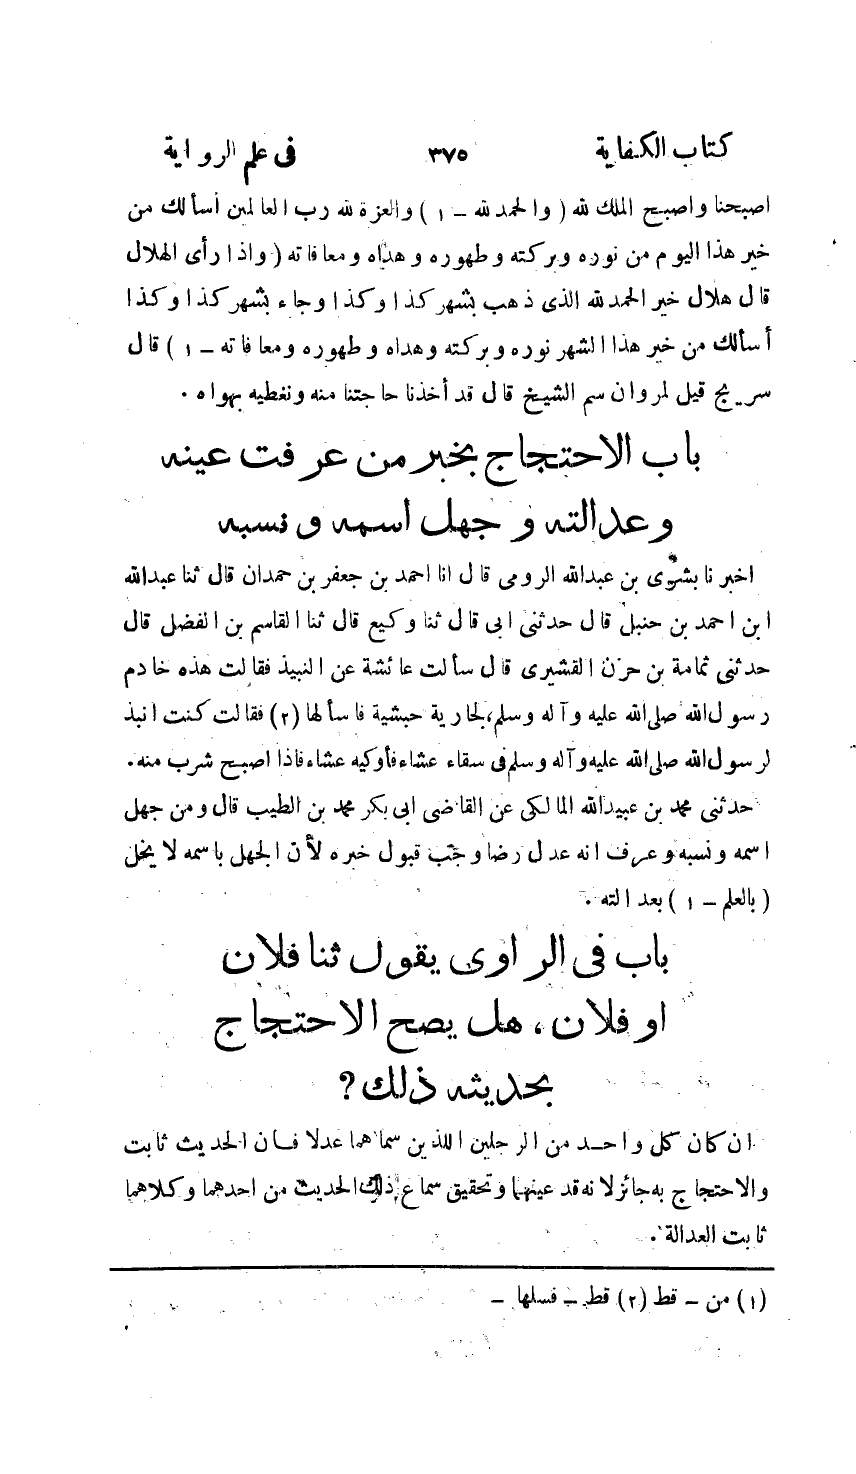 كتاب الكفاية ٣٧٥ فى علم الرواية
اصبحنا واصبح الملك لله (والحمد لله - ١) والعزة لله رب العالمين أسألك من
خير هذا اليوم من نوره وبركته وطهوره وهداه ومعافاته (واذا رأى الهلال
قال هلال خير الحمد لله الذى ذهب بشهر كذا وكذا وجاء بشهر كذا وكذا
أسألك من خير هذا الشهر نوره وبركته وهداه وطهوره ومعافاته - ١) قال
سريج قيل لمروان سم الشيخ قال قد أخذنا حاجتنا منه ونغطيه بهواه .
باب الاحتجاج بخبر من عرفت عينه
وعدالته و جهل اسمه و نسبه
اخبرنا بشرى بن عبدالله الرومى قال انا احمد بن جعفر بن حمدان قال ثنا عبدالله
ابن احمد بن حنبل قال حدثنى ابى قال ثنا وكيع قال ثنا القاسم بن الفضل قال
حدثنى ثمامة بن حزن القشيرى قال سألت عائشة عن النبيذ فقالت هذه خادم
رسول الله صلى الله عليه وآله وسلم، لجارية حبشية فاسألها (٢) فقالت كنت انبذ
لرسول الله صلى الله عليه وآله وسلم فى سقاء عشاء فأوكيه عشاء فاذا اصبح شرب منه.
حدثنى محمد بن عبيدالله المالكى عن القاضى ابى بكر محمد بن الطيب قال ومن جهل
اسمه ونسبه وعرف انه عدل رضا وجب قبول خبره لأن الجهل باسمه لا يخل
(بالعلم - ١) بعدالته .
باب فى الراوى يقول ثنا فلان
او فلان، هل يصح الاحتجاج
بحديثه ذلك؟
ان كان كل واحد من الرجلين اللذين سماهما عدلا فان الحديث ثابت
والاحتجاج به جائز لانه قد عينهما وتحقيق سماع ذلك الحديث من احدهما وكلاهما
ثابت العدالة .
(١) من - قط (٢) قط - فسلها -